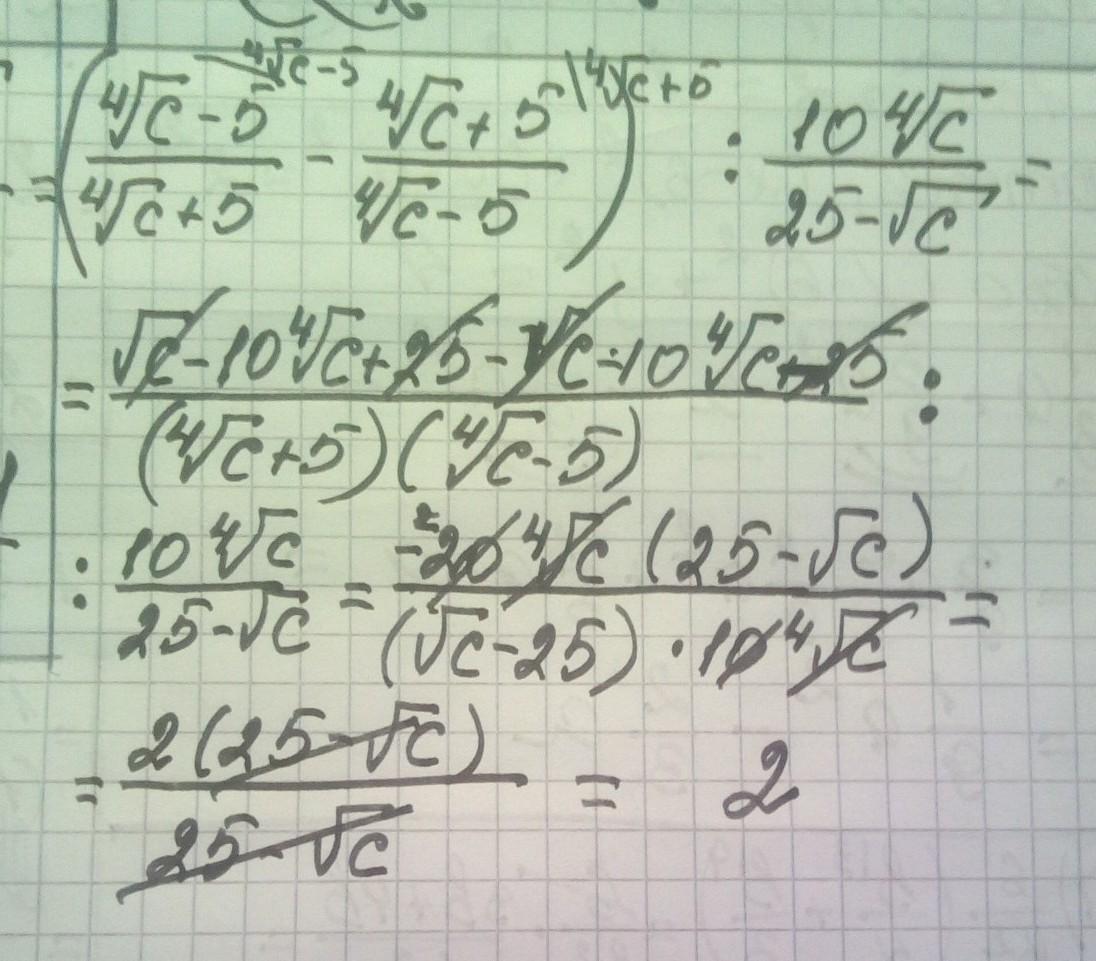 = ( (⁴√c - 5)/(⁴√c + 5) \ ⁴√c - 5 - (⁴√c + 5)/(⁴√c - 5) \ ⁴√c + 5 ) : (10 ⁴√c)/(25 - √c) =
= (√c - 10 ⁴√c + 25 - √c - 10 ⁴√c + 25)/((⁴√c + 5)(⁴√c - 5)) :
: (10 ⁴√c)/(25 - √c) = (-20 ⁴√c (25 - √c))/((√c - 25) · 10 ⁴√c) =
= (2(25 - √c))/(25 - √c) = 2